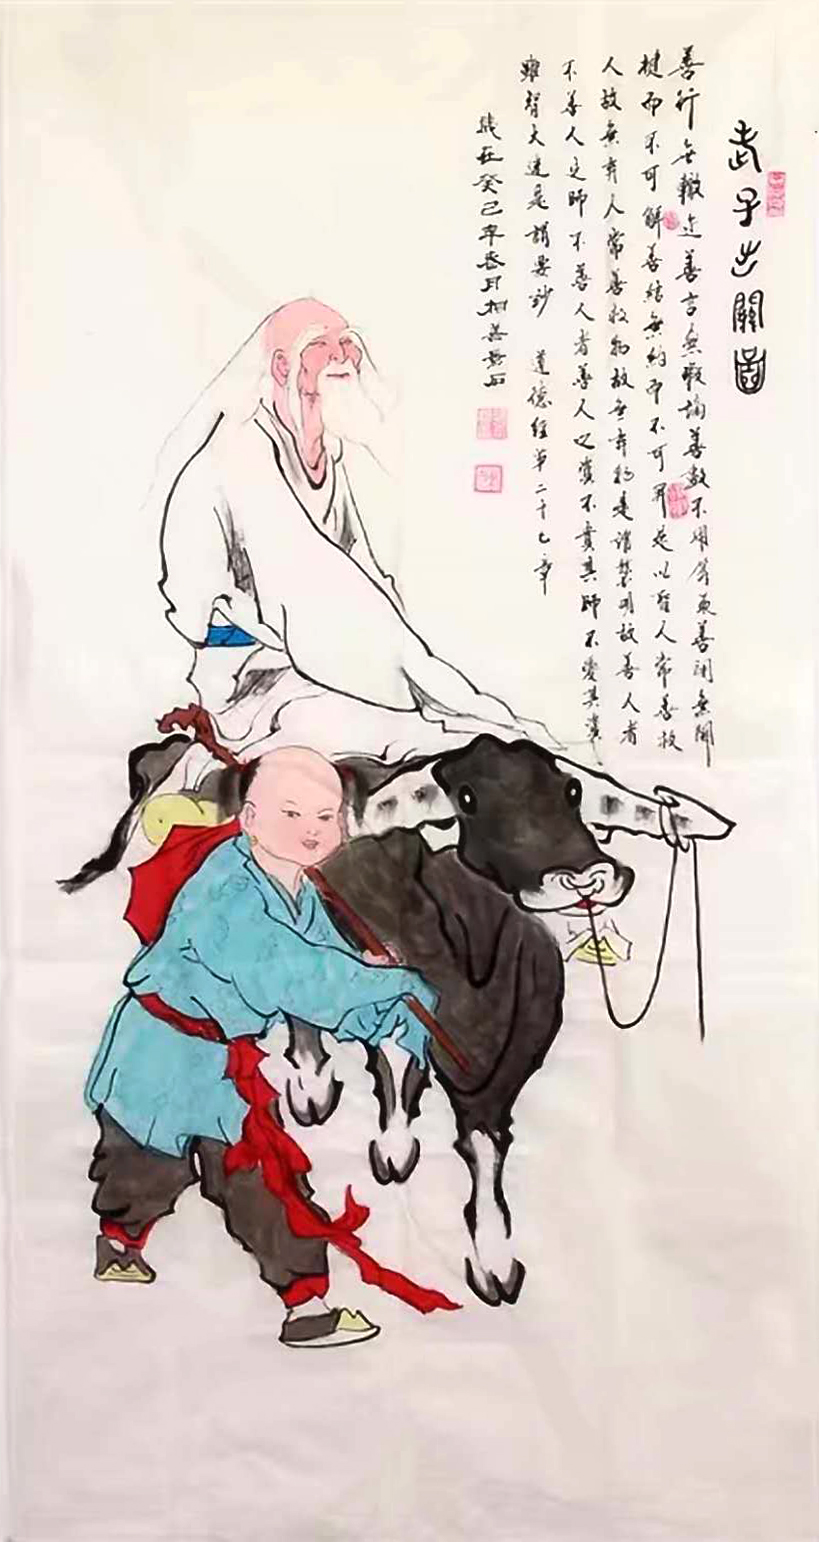 老子出關圖
善行無轍迹善言無瑕謫善數不用籌策善閉無關
楗而不可解善結無約而不可是以聖人常善救
人故無棄人常善救物故無棄物是謂襲明故善人者
不善人之師不善人者善人之資不貴其師不愛其資
雖智大迷是謂要妙 道德經第二十七章
歲在癸巳年春月